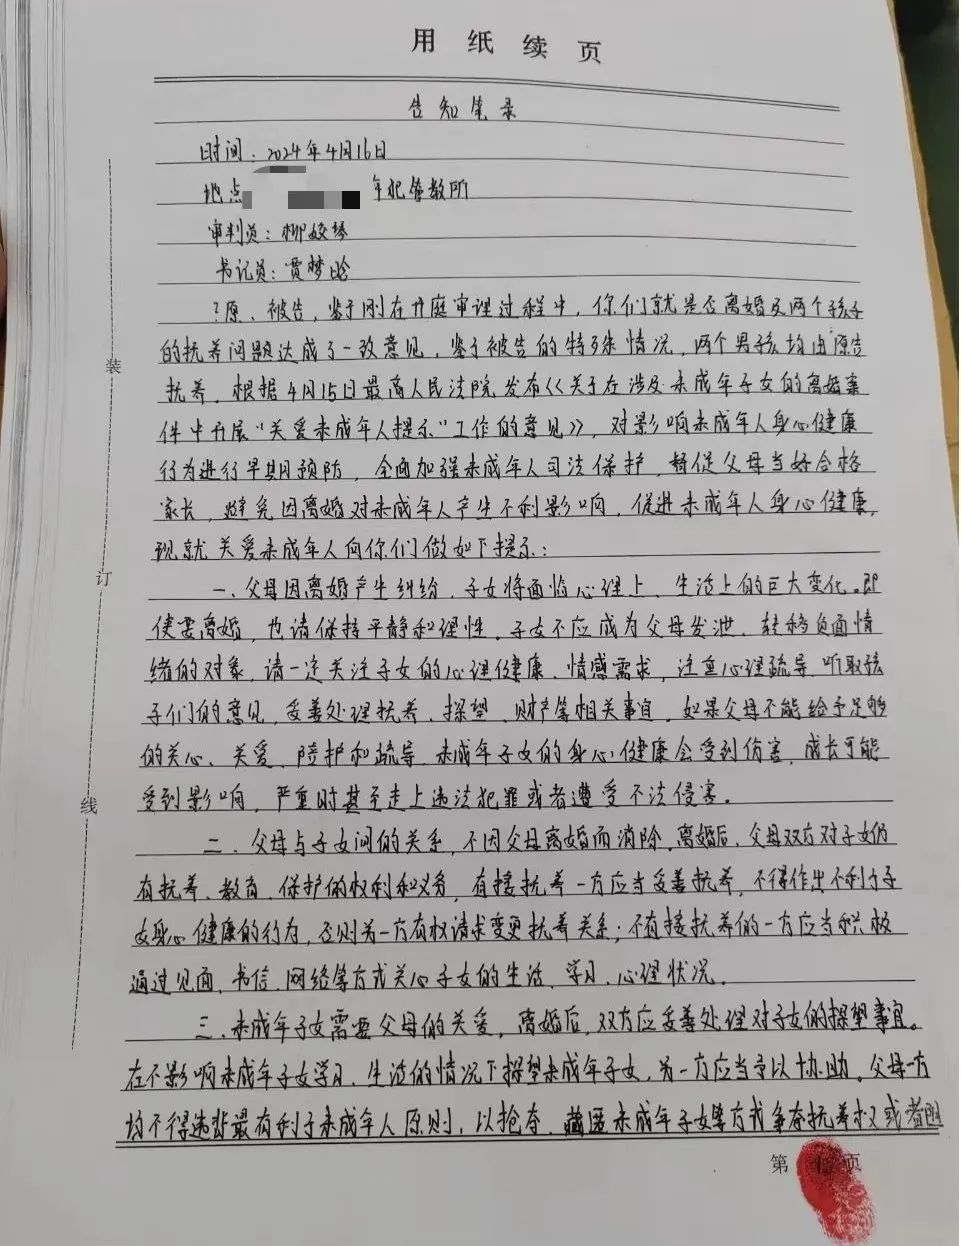 用纸续页
告知笔录
时间：2024年4月16日
地点 年犯管教所
审判员：柳姣琴
书记员：贾梦晗
？原、被告，鉴于刚在开庭审理过程中，你们就是否离婚及两个孩子
的抚养问题达成了一致意见，鉴于被告的特殊情况，两个男孩均由原告
抚养，根据4月15日最高人民法院发布《关于在涉及未成年子女的离婚案
件中开展“关爱未成年人提示”工作的意见》，对影响未成年人身心健康
行为进行早期预防，全面加强未成年人司法保护，督促父母当好合格
家长，避免因离婚对未成年人产生不利影响，促进未成年人身心健康，
现就关爱未成年人向你们做如下提示：
一、父母因离婚产生纠纷，子女将面临心理上、生活上的巨大变化。即
使要离婚，也请保持平静和理性。子女不应成为父母发泄、转移负面情
绪的对象，请一定关注子女的心理健康、情感需求，注重心理疏导，听取孩
子们的意见，妥善处理抚养、探望、财产等相关事宜。如果父母不能给予足够
的关心、关爱、陪护和疏导，未成年子女的身心健康会受到伤害，成长可能
受到影响，严重时甚至走上违法犯罪或者遭受不法侵害。
二、父母与子女间的关系，不因父母离婚而消除。离婚后，父母双方对子女仍
有抚养、教育、保护的权利和义务，直接抚养一方应当妥善抚养，不得作出不利于子
女身心健康的行为，否则另一方有权请求变更抚养关系；不直接抚养的一方应当积极
通过见面、书信、网络等方式关心子女的生活、学习、心理状况。
三、未成年子女需要父母的关爱，离婚后，双方应妥善处理对子女的探望事宜。
在不影响未成年子女学习、生活的情况下探望未成年子女，另一方应当予以协助。父母一方
均不得违背最有利于未成年人原则，以抢夺、藏匿未成年子女等方式争夺抚养权或者
第 页
装
订
线